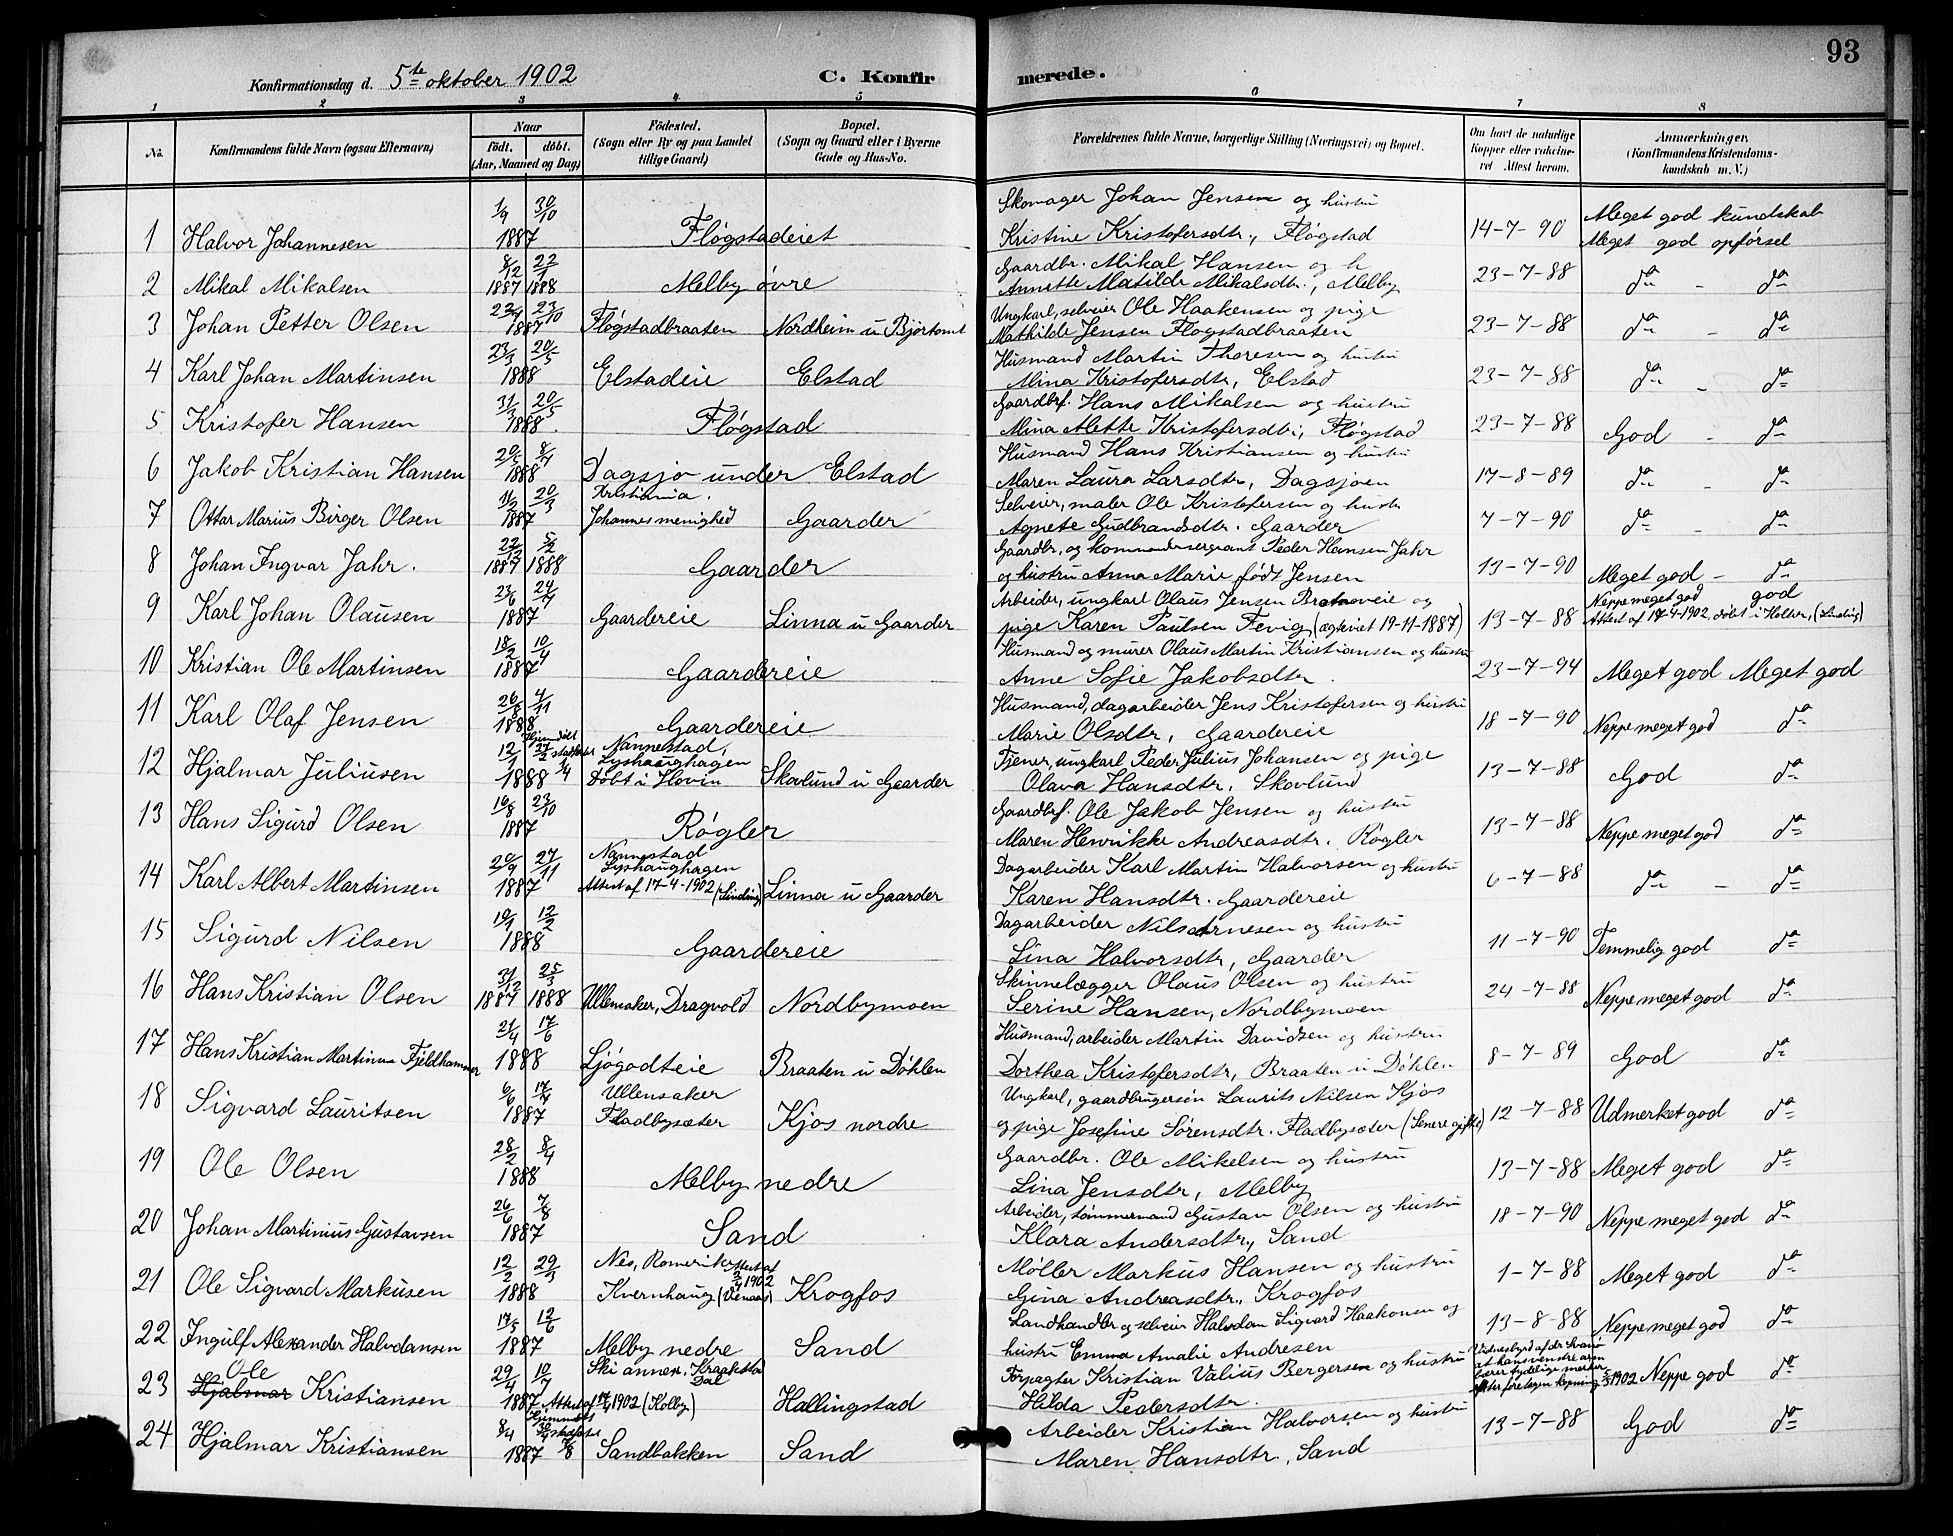 93
Konfirmationsdag d. 5te oktober 1902 C. Konfirmerede.
1 2 3 4 5 6 7 8
No. Konfirmandens fulde Navn (ogsaa Efternavn) Naar födt. döbt. (Aar, Maaned og Dag) Födested. (Sogn eller By og paa Landet tillige Gaard) Bopæl. (Sogn og Gaard eller i Byerne Gade og Hus-No. Forældrenes fulde Navne, borgerlige Stilling (Næringsvei) og Bopæl. Om havt de naturlige Kopper eller vakcineret Attest herom. Anmærkninger. (Konfirmandens Kristendomskundskab m. V.)
1/9 30/10 Skomager Johan Jensen og hustru Meget god kundskab
1 Halvor Johannesen 1887 Fløgstadeiet Kristine Kristofersdtr., Fløgstad 14-7-90 Meget god opførsel
8/12 22/1 Gaardbr. Mikal Hansen og h
2 Mikal Mikalsen 1887 1888 Melby øvre Annette Matilde Mikalsdtr., Melby 23-7-88 do - do
23/10 Ungkarl, selveier Ole Haakensen og pige
3 Johan Petter Olsen 1887 Fløgstadbraaten Nordheim u Bjørtomt Mathilde Jensen Fløgstadbraaten 23-7-88 do - do
20/5 Husmand Martin Thoresen og hustru
4 Karl Johan Martinsen 1888 Elstadeie Elstad Mina Kristofersdtr, Elstad 23-7-88 do - do
31/3 20/5 Gaardbr. Hans Mikalsen og hustru
5 Kristofer Hansen 1888. Fløgstad Mina Mette Kristofersdtr, Fløgstad 23-7-88 God - do
Husmand Hans Kristiansen og hustru
6 Jakob Kristian Hansen 1888 Dagsjo under Elstad Maren Laura Larsdtr, Dagsjoen 17-8-89 do - do
20/3 Kristiania. Selveier, maler Ole Kristofersen og hustr
7 Ottar Marius Birger Olsen 1887 Johannes menighed Gaarder Agnete Gudbrandsdtr. Gaarder 7-7-90 do - do
22/12 5/2 Gaardbr. og kommandersergeant Peder Hansen Jahr
8 Johan Ingvar Jahr. 1887 1888 Gaarder og hustru Anna Marie født Jensen 13-7-90 Meget god - do
23/6 24/7 Arbeider, ungkarl Olaus Jensen Brataaveie og Neppe meget god god
9 Karl Johan Olausen 1887 Gaardereie Linna u Gaarder pige Karen Paulsen Fevig (ægteviet 19-11-1887) 13-7-88 Attest af 17-4-1902, døbt i Holter, (Linding)
18/2 10/4 Husmand og murer Olaus Martin Kristiansen og hustru
10 Kristian Ole Martinsen 1887 Gaardereie Anne Sofie Jakobsdtr. 23-7-94 Meget god Meget god
26/8 4/11 Husmand, dagarbeider Jens Kristofersen og hustru
11 Karl Olaf Jensen 1888 Gaardereie Marie Olsdtr, Gaardereie 18-7-90 Neppe meget god do
12/1 27/2 Hjemdøbt stadfæstet Nannestad, Lyshaughagen Tjener, ungkarl Peder Julius Johansen og pige
12 Hjalmar Juliusen 1888 1/4 Døbt i Hovin Skovlund u Gaarder Olava Hansdtr, Skovlund 13-7-88 God do
16/8 23/10 Gaardbr. Ole Jakob Jensen og hustru
13 Hans Sigurd Olsen 1887 Røgler Maren Henrikke Andreasdtr. Røgler 13-7-88 Neppe meget god do
20/9 27/11 Nannestad Lyshaughagen Dagarbeider Karl Martin Halvorsen og hustru
14 Karl Albert Martinsen 1887 Attest af 17-4-1902 (Linding) Linna u Gaarder Karen Hansdtr. Gaardereie 6-7-88 do - do
12/2 Dagarbeider Nils Arnesen og hustru
15 Sigurd Nilsen 1888 Gaardereie Lina Halvorsdtr, Gaarder 11-7-90 Temmelig god do
31/12 25/3 Skinnelægger Olaus Olsen og hustru
16 Hans Kristian Olsen 1887 1888 Ullensaker, Dragvold Nordbymoen Serine Hansen, Nordbymoen 24-7-88 Neppe meget god do
21/4 17/6 Husmand, arbeider Martin Davidsen og hustru
17 Hans Kristian Martinius Fjeldhammer 1888 Ljøgodteie Braaten u Døhlen Dorthea Kristofersdtr, Braaten u Døhlen 8-7-89 God do
6/6 Ullensaker Ungkarl, gaardbrugersøn Laurits Nilsen Kjos
18 Sigvard Lauritsen 1887 Fladbysæter Kjos nordre og pige Josefine Sørensdtr. Fladbysæter (Senere gifte) 12-7-88 Udmerket god do
28/2 8/4 Gaardbr. Ole Mikelsen og hustru
19 Ole Olsen 1888 Melby nedre Lina Jensdtr, Melby 13-7-88 Meget god do
26/6 7/8 Arbeider, tømmermand Gustav Olsen og hustru
20 Johan Martinius Gustavsen 1887 Sand Klara Andersdtr, Sand 18-7-90 Neppe meget god do
12/2 29/3 Nes, Romerike Attest af 2/4 1902 Møller Markus Hansen og hustru
21 Ole Sigvard Markusen 1888 Kvernhaug Krogfos Gina Andreasdtr. Krogfos 1-7-88 Meget god do
17/5 12/6 Landhandler og selveier Halvdan Sigvard Haakonsen og
22 Ingulf Alexander Halvdansen 1887 Melby nedre Sand hustru Emma Amalie Andresen 13-8-88 Neppe meget god do
Ole 29/4 10/7 Ski annex, Kraakstad Dal Forpagter Kristian Valius Bergersen og hustru
23 Hjalmar Kristiansen 1887 Attest af 1902 (Kolby) Hallingstad Hilda Pedersdtr. Vidnesbyrd af dr Svanø at hans venstre arm bærer tydelige merker efter foretagen kopning 1902 Neppe god do
8/4 Hjemmedøbt Stadfæstet Arbeider Kristian Halvorsen og hustru
24 Hjalmar Kristiansen 1887 7/8 Sandbakken Sand Maren Hansdtr, Sand 13-7-88 God do